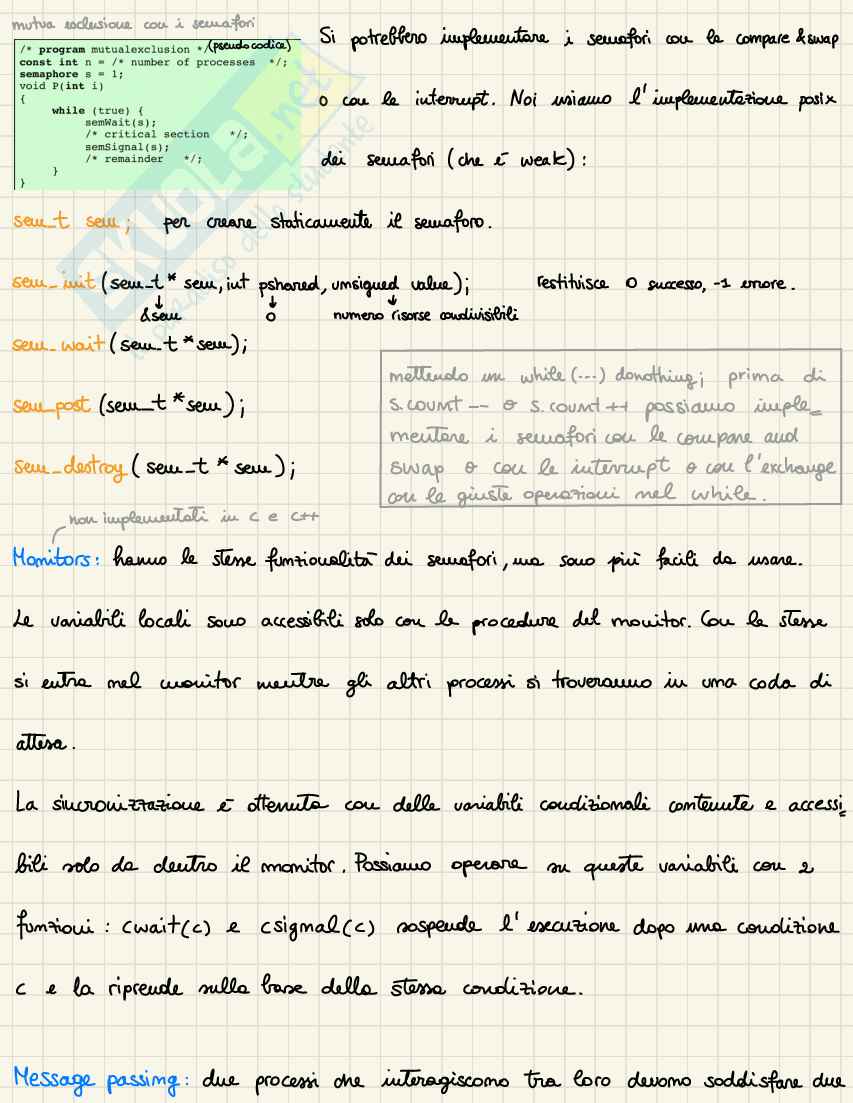 mutua esclusione con i semafori
/* program mutualexclusion */ (pseudocodice)
const int n = /* number of processes */;
semaphore s = 1;
void P(int i)
{
while (true) {
semWait(s);
/* critical section */;
semSignal(s);
/* remainder */;
}
}
Si potrebbero implementare i semafori con le compare & swap
o con le interrupt. Noi usiamo l'implementazione posix
dei semafori (che è weak):
sem_t sem; per creare staticamente il semaforo.
sem_init (sem_t* sem, int pshared, unsigned value); restituisce 0 successo, -1 errore.
↓ ↓ ↓
&sem 0 numero risorse condivisibili
sem_wait (sem_t *sem);
sem_post (sem_t *sem);
sem_destroy (sem_t * sem);
mettendo un while (...) donothing; prima di
s.count -- o s.count ++ possiamo imple=
mentare i semafori con le compare and
swap o con le interrupt o con l'exchange
con le giuste operazioni nel while.
non implementati in c e c++
Monitors: hanno le stesse funzionalità dei semafori, ma sono più facili da usare.
Le variabili locali sono accessibili solo con le procedure del monitor. Con le stesse
si entra nel monitor mentre gli altri processi si troveranno in una coda di
attesa.
La sincronizzazione è ottenuta con delle variabili condizionali contenute e accessi=
bili solo da dentro il monitor. Possiamo operare su queste variabili con 2
funzioni: cwait(c) e csignal(c) sospende l'esecuzione dopo una condizione
c e la riprende sulla base della stessa condizione.
Message passing: due processi che interagiscono tra loro devono soddisfare due
SKUOLA.net
il paradiso dello studente